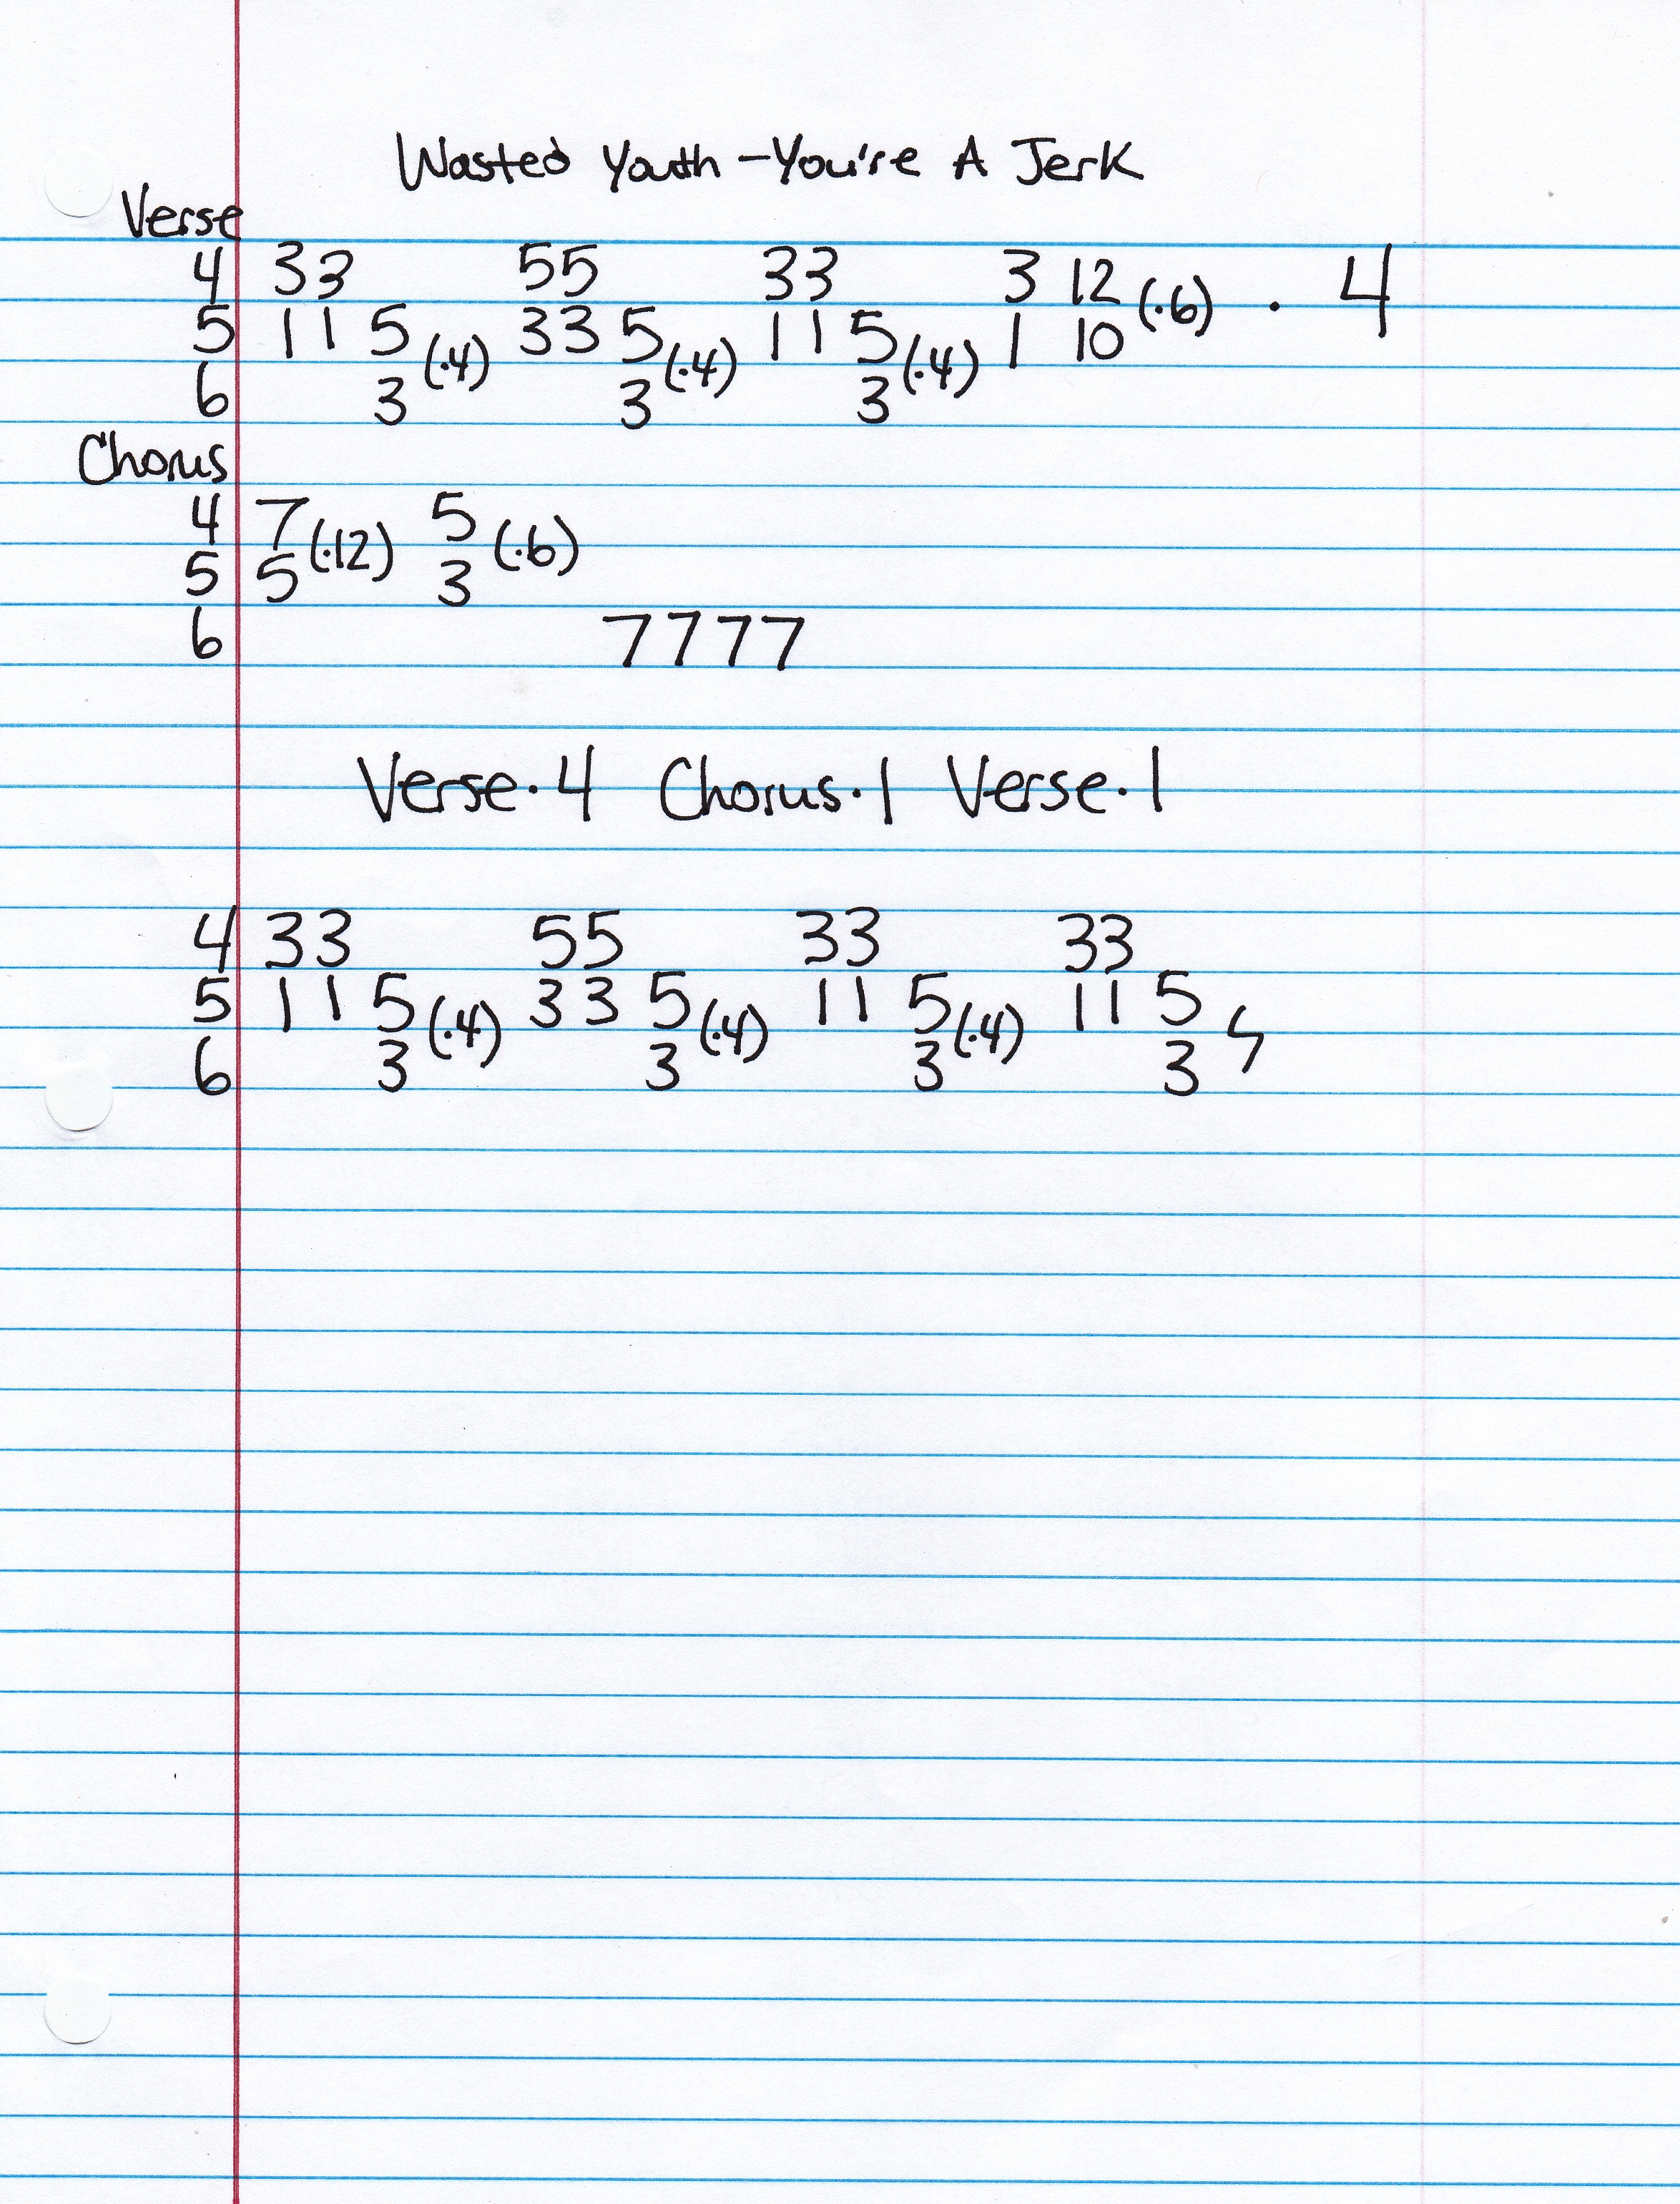 Wasted Youth - You're A Jerk
Verse
4 33 55 33 3 12 (·6) · 4
5 11 5 (·4) 33 5 (·4) 11 5 (·4) 1 10
6 3 3 3
Chorus
4 7 (·12) 5 (·6)
5 5 3
6 7777
Verse·4 Chorus·1 Verse·1
4 33 55 33 33
5 11 5 (·4) 33 5 (·4) 11 5 (·4) 11 5
6 3 3 3 3